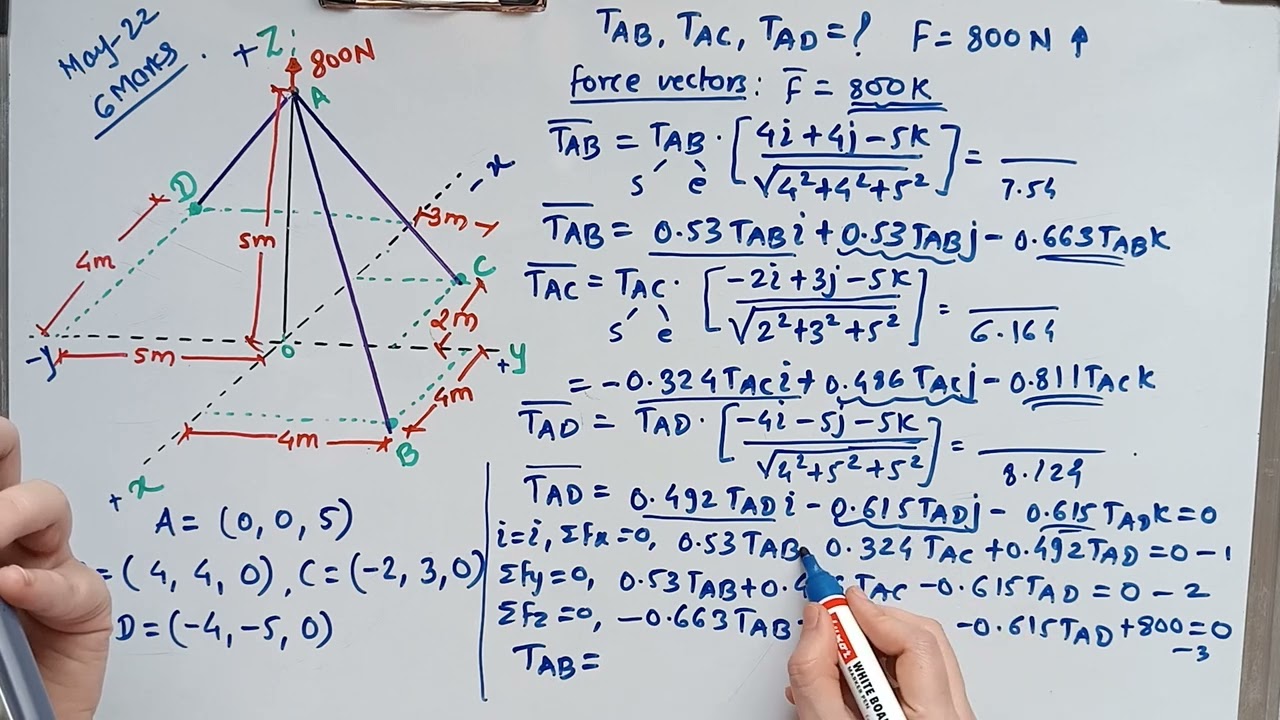 May-22
6 Marks
+Z
800N
A
D
-x
3m
5m
4m
C
2m
-Y
5m
O
+Y
4m
4m
B
+x
A = (0, 0, 5)
= ( 4, 4, 0), C = (-2, 3, 0)
D = (-4, -5, 0)
TAB, TAC, TAD = ? F = 800N ↑
force vectors: F̅ = 800K
T̅AB = TAB · [4i + 4j - 5K / √4²+4²+5²] = 7.54
s e
T̅AB = 0.53 TAB i + 0.53 TAB j - 0.663 TAB K
T̅AC = TAC · [-2i + 3j - 5K / √2²+3²+5²] = 6.164
s e
= -0.324 TAC i + 0.486 TAC j - 0.811 TAC K
T̅AD = TAD · [-4i - 5j - 5K / √4²+5²+5²] = 8.124
T̅AD = 0.492 TAD i - 0.615 TAD j - 0.615 TAD K = 0
i = i, Σfx = 0, 0.53 TAB 0.324 TAC + 0.492 TAD = 0 - 1
Σfy = 0, 0.53 TAB + 0.4 TAC - 0.615 TAD = 0 - 2
Σfz = 0, -0.663 TAB -0.615 TAD + 800 = 0
-3
TAB =
WHITE BOA
MARKER PEN